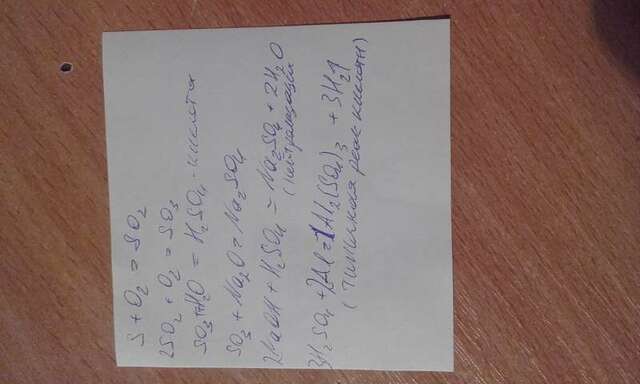 S + O₂ = SO₂
2SO₂ + O₂ = SO₃
SO₃ + H₂O = H₂SO₄ - кислота
SO₃ + Na₂O = Na₂SO₄
2NaOH + H₂SO₄ = Na₂SO₄ + 2H₂O
3H₂SO₄ + 2Al = 1Al₂(SO₄)₃ + 3H₂↑
(типичная реак кислот)